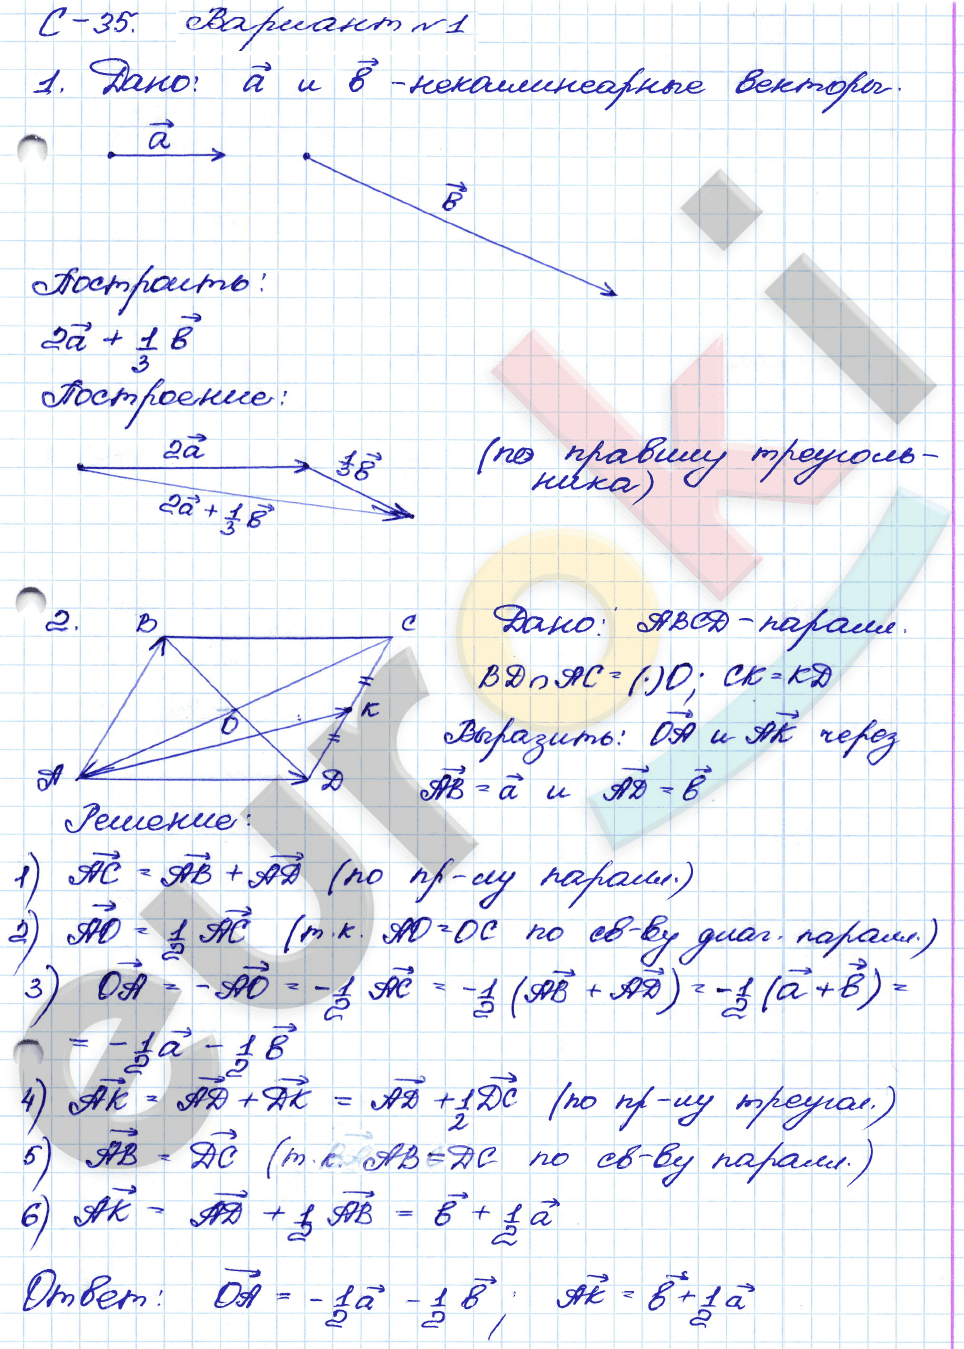 С-35. Вариант №1
1. Дано: a⃗ и b⃗ - неколлинеарные векторы.
a⃗
b⃗
Построить:
2a⃗ + 1/3 b⃗
Построение:
2a⃗
1/3 b⃗
2a⃗ + 1/3 b⃗
(по правилу треуголь-
ника)
2.
B
C
O
K
A
D
Дано: ABCD - паралл.
BD∩AC = (·)O; CK = KD
Выразить: OA⃗ и AK⃗ через
AB⃗ = a⃗ и AD⃗ = b⃗
Решение:
1) AC⃗ = AB⃗ + AD⃗ (по пр-лу паралл.)
2) AO⃗ = 1/2 AC⃗ (т.к. AO=OC по св-ву диаг. паралл.)
3) OA⃗ = -AO⃗ = -1/2 AC⃗ = -1/2 (AB⃗ + AD⃗) = -1/2 (a⃗ + b⃗) =
= -1/2 a⃗ - 1/2 b⃗
4) AK⃗ = AD⃗ + DK⃗ = AD⃗ + 1/2 DC⃗ (по пр-лу треугол.)
5) AB⃗ = DC⃗ (т.к. AB = DC по св-ву паралл.)
6) AK⃗ = AD⃗ + 1/2 AB⃗ = b⃗ + 1/2 a⃗
Ответ: OA⃗ = -1/2 a⃗ - 1/2 b⃗ ; AK⃗ = b⃗ + 1/2 a⃗
euroki